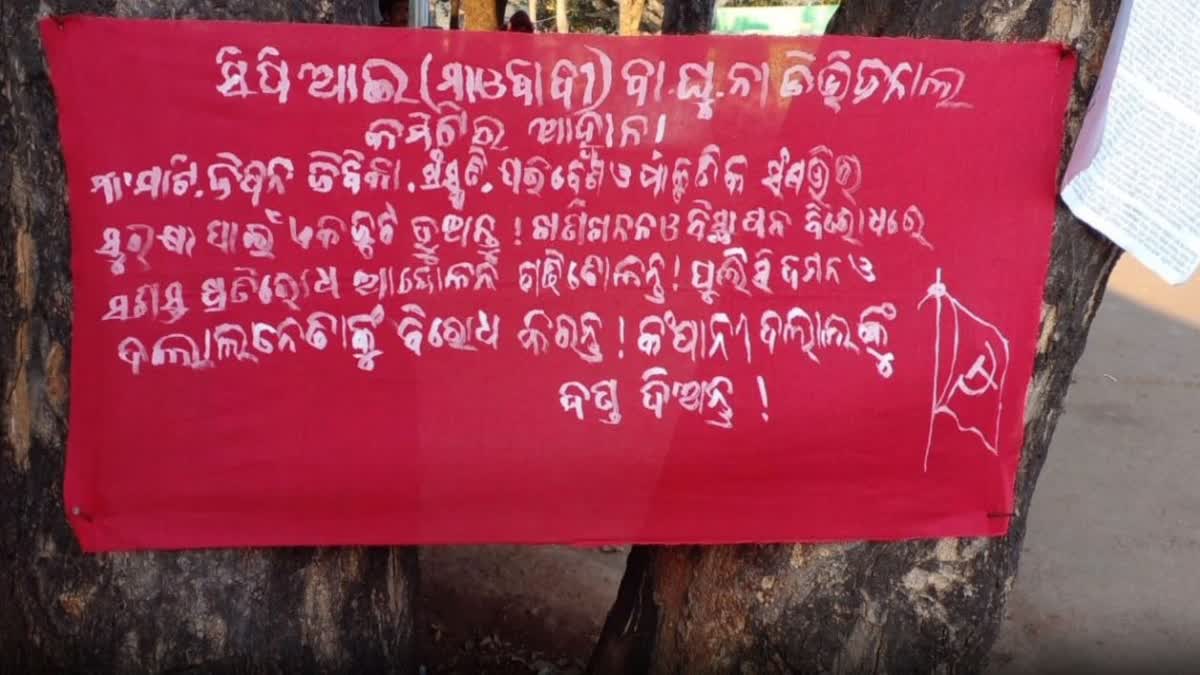 ସିପିଆଇ (ମାଓବାଦୀ) ବା.ଘୁ.ନା ଡିଭିଜନାଲ
କମିଟିର ଆହ୍ୱାନ।
ମା' ମାଟି, ଜିଵନ ଜିବିକା, ସଂସ୍କୃତି, ପରିବେଶ ଓ ପ୍ରାକୃତିକ ସଂସାଧନର
ସୁରକ୍ଷା ପାଇଁ ଏକଜୁଟ ହୁଅନ୍ତୁ! ଖଣିଖନନ ଓ ବିସ୍ଥାପନ ବିରୋଧରେ
ସଶସ୍ତ୍ର ପ୍ରତିରୋଧ ଆନ୍ଦୋଳନ ଗଢିତୋଳନ୍ତୁ! ପୁଲିସି ଦମନ ଓ
ଦଲାଲ ନେତାଙ୍କୁ ବିରୋଧ କରନ୍ତୁ! କଂପାନୀ ଦଲାଲଙ୍କୁ
ଦଣ୍ଡ ଦିଅନ୍ତୁ!